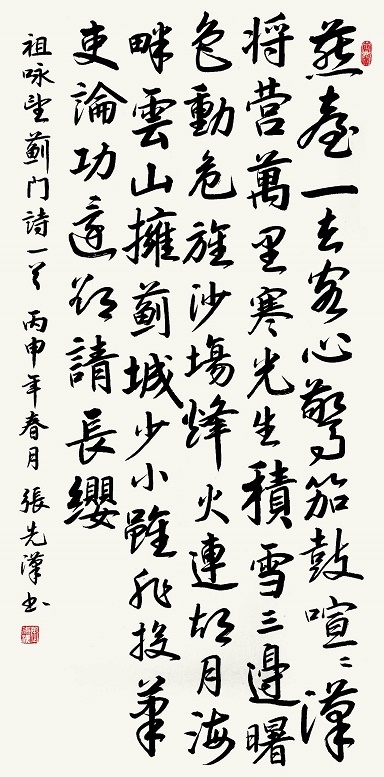 燕臺一去客心驚笳鼓喧〻漢
将营萬里寒光生積雪三邊曙
色動危旌沙場烽火連胡月海
畔雲山擁薊城少小雖非投筆
吏論功還欲請長纓
祖咏望薊门詩一首 丙申年春月 張先漢书